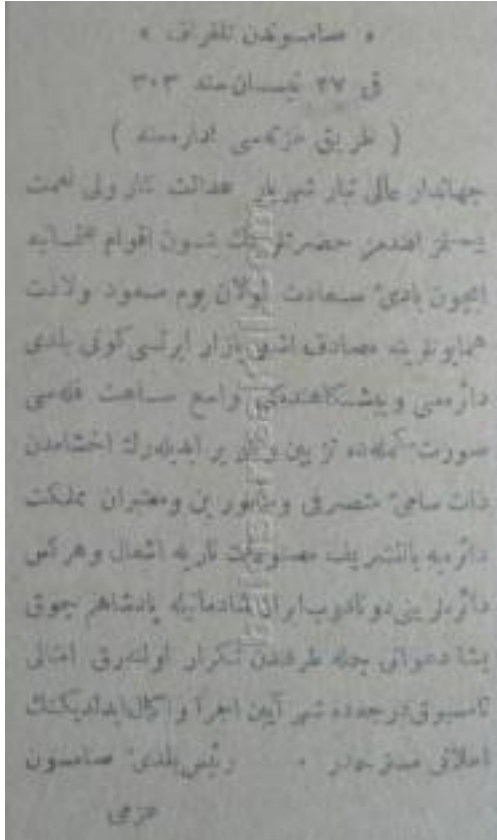 « صامسوندن تلغراف »
فی ٢٧ نیسان سنه ٣٠٣
( طریق غزته‌سی اداره‌سنه )
جهاندار عالی تبار شهریار عدالت نثار ولی نعمت
بیمنتمز افندمز حضرتلرینك شئون اقوام عثمانیه
ایچون بادئ سعادت اولان یوم مسعود ولادت
همایونلرینه مصادف اشبو بازار ایرتسی کونی بلدی
دائره‌سی و پیشكاهنده‌کی واسع ساعت قله‌سی
صورت مکمله‌ده تزیین و تنویر ایدیله‌رك اخشامدن
ذات سامئ متصرفی و مأمورین و معتبران مملکت
دائره‌یه بالتشریف مصنوعات ناریه اشعال و هرکس
دائره‌لرینی دونادوب شادمانیله پادشاهم چوق
یشا دعواتی جمله طرفدن تکرار اوله‌رق امثالی
نامسبوق درجه‌ده شهر آیین اجرا و اکمال ایدلدیکنك
اعلانی مسترحمدر . رئیس بلدئ صامسون
عزمی